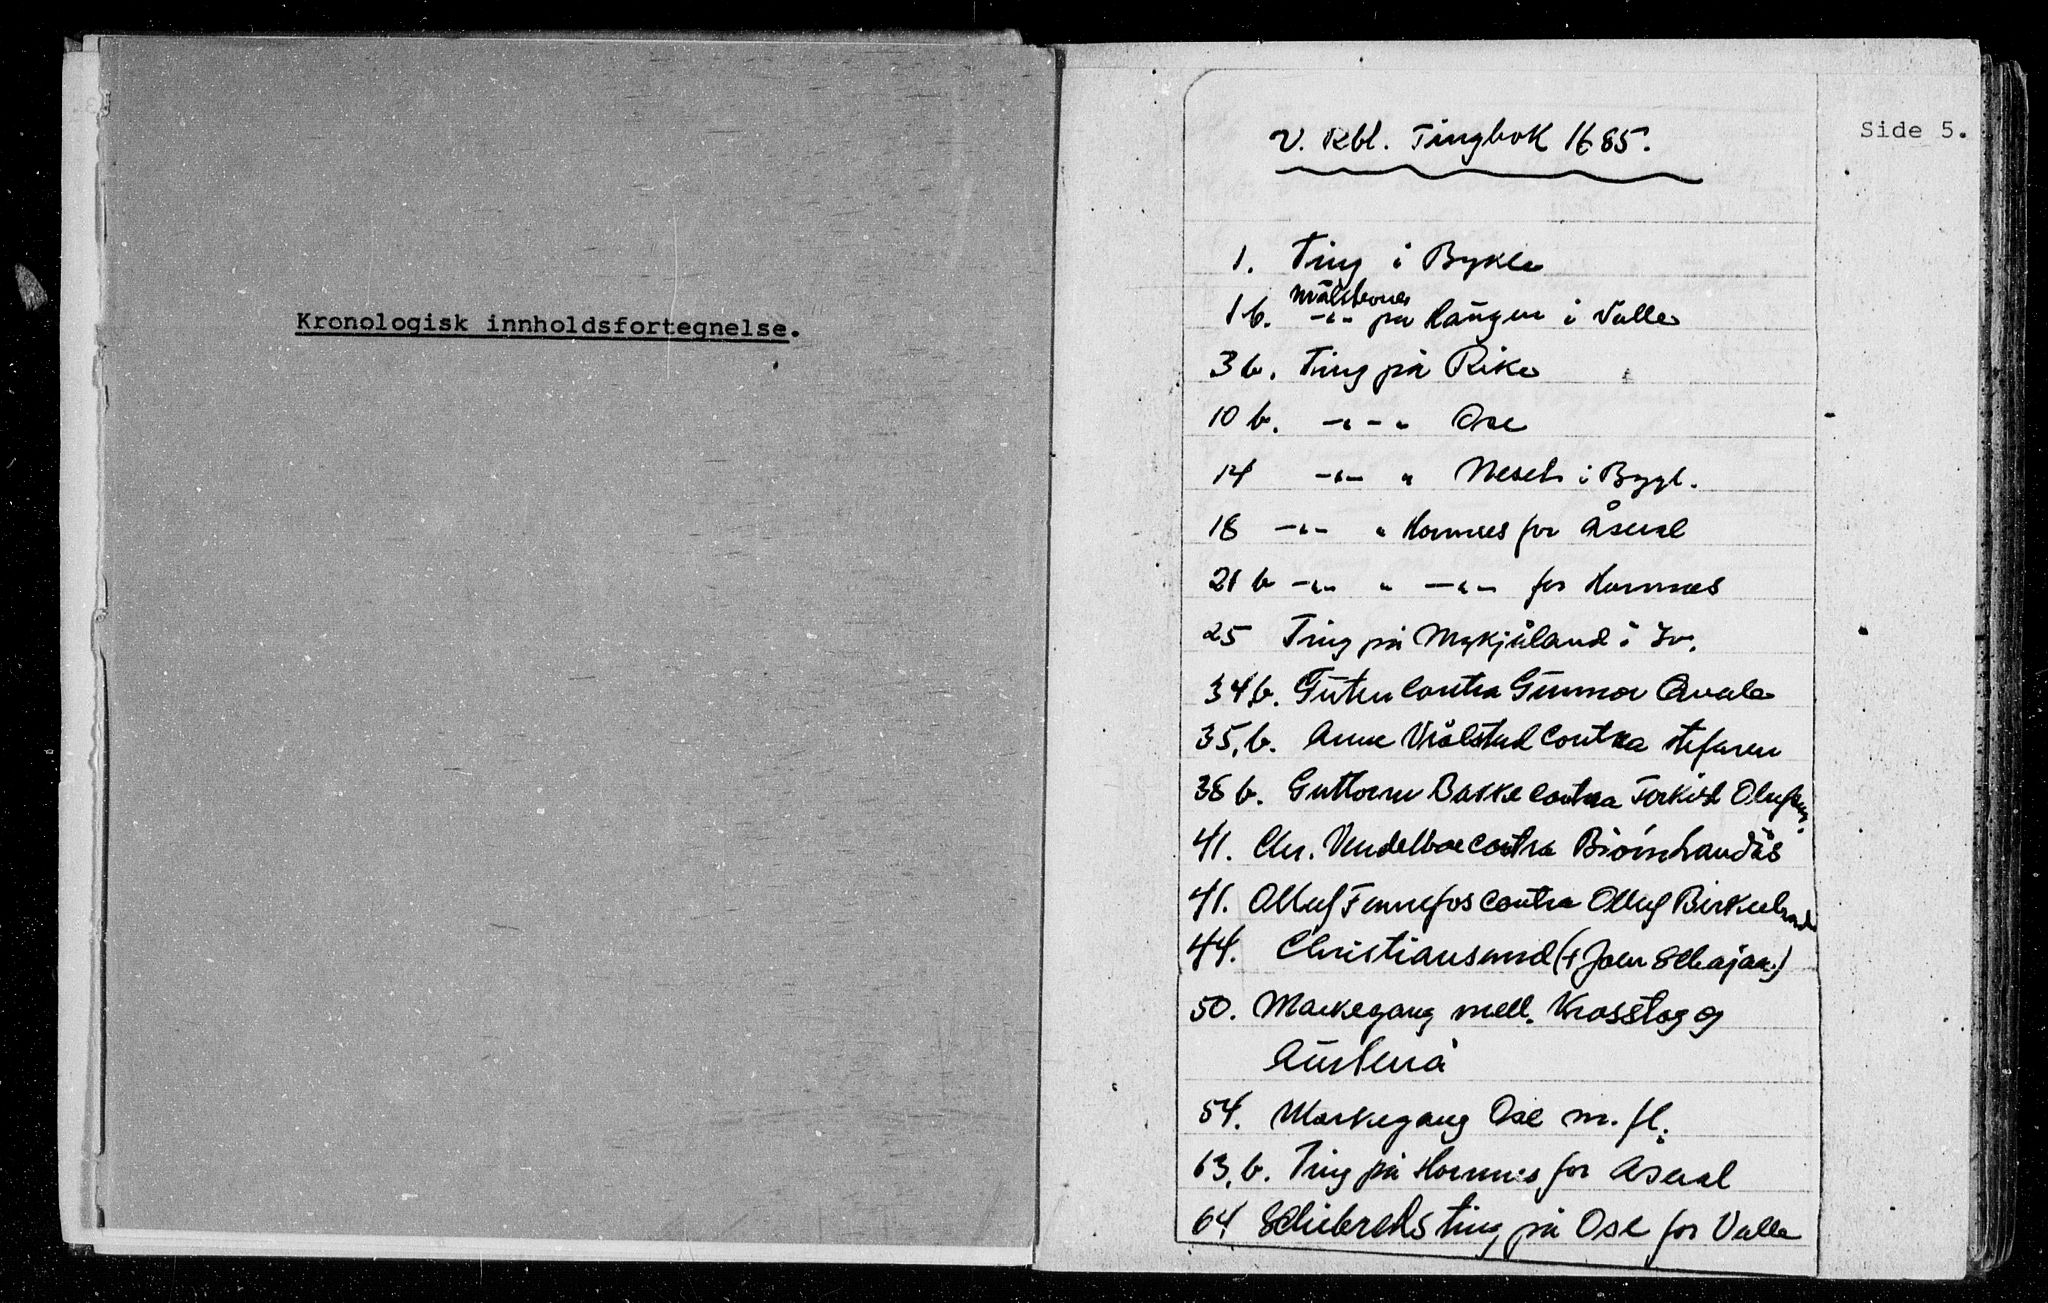 Kronologisk innholdsfortegnelse.
Side 5.
V. Rbl. Tingbok 1685.
1. Ting i Bykle
1b. -"- på Haugen i Valle
3b. Ting på Rike
10b. -"- " Ose
14 -"- " Neset i Bygl.
18 -"- " Hornnes for Åseral
21b -"- " -"- for Hornnes
25 Ting på Mykjåland i Iv.
34,b. Futen contra Gunnar Qvale
35,b. Anne Viålstad contra
38b. Guttorm Bakke contra Torkild Olufsen.
41. Chr. Vendelboe contra Biørn Landås
41. Olluf Fennefos contra Olluf Birkeland
44. Christiansand (+ Joen
50. Markegang mell. Krosstog og
Austenå
54. Markegang Ose m. fl.
63,b. Ting på Hornnes for Åseral
64 Schibreds ting på Ose for Valle